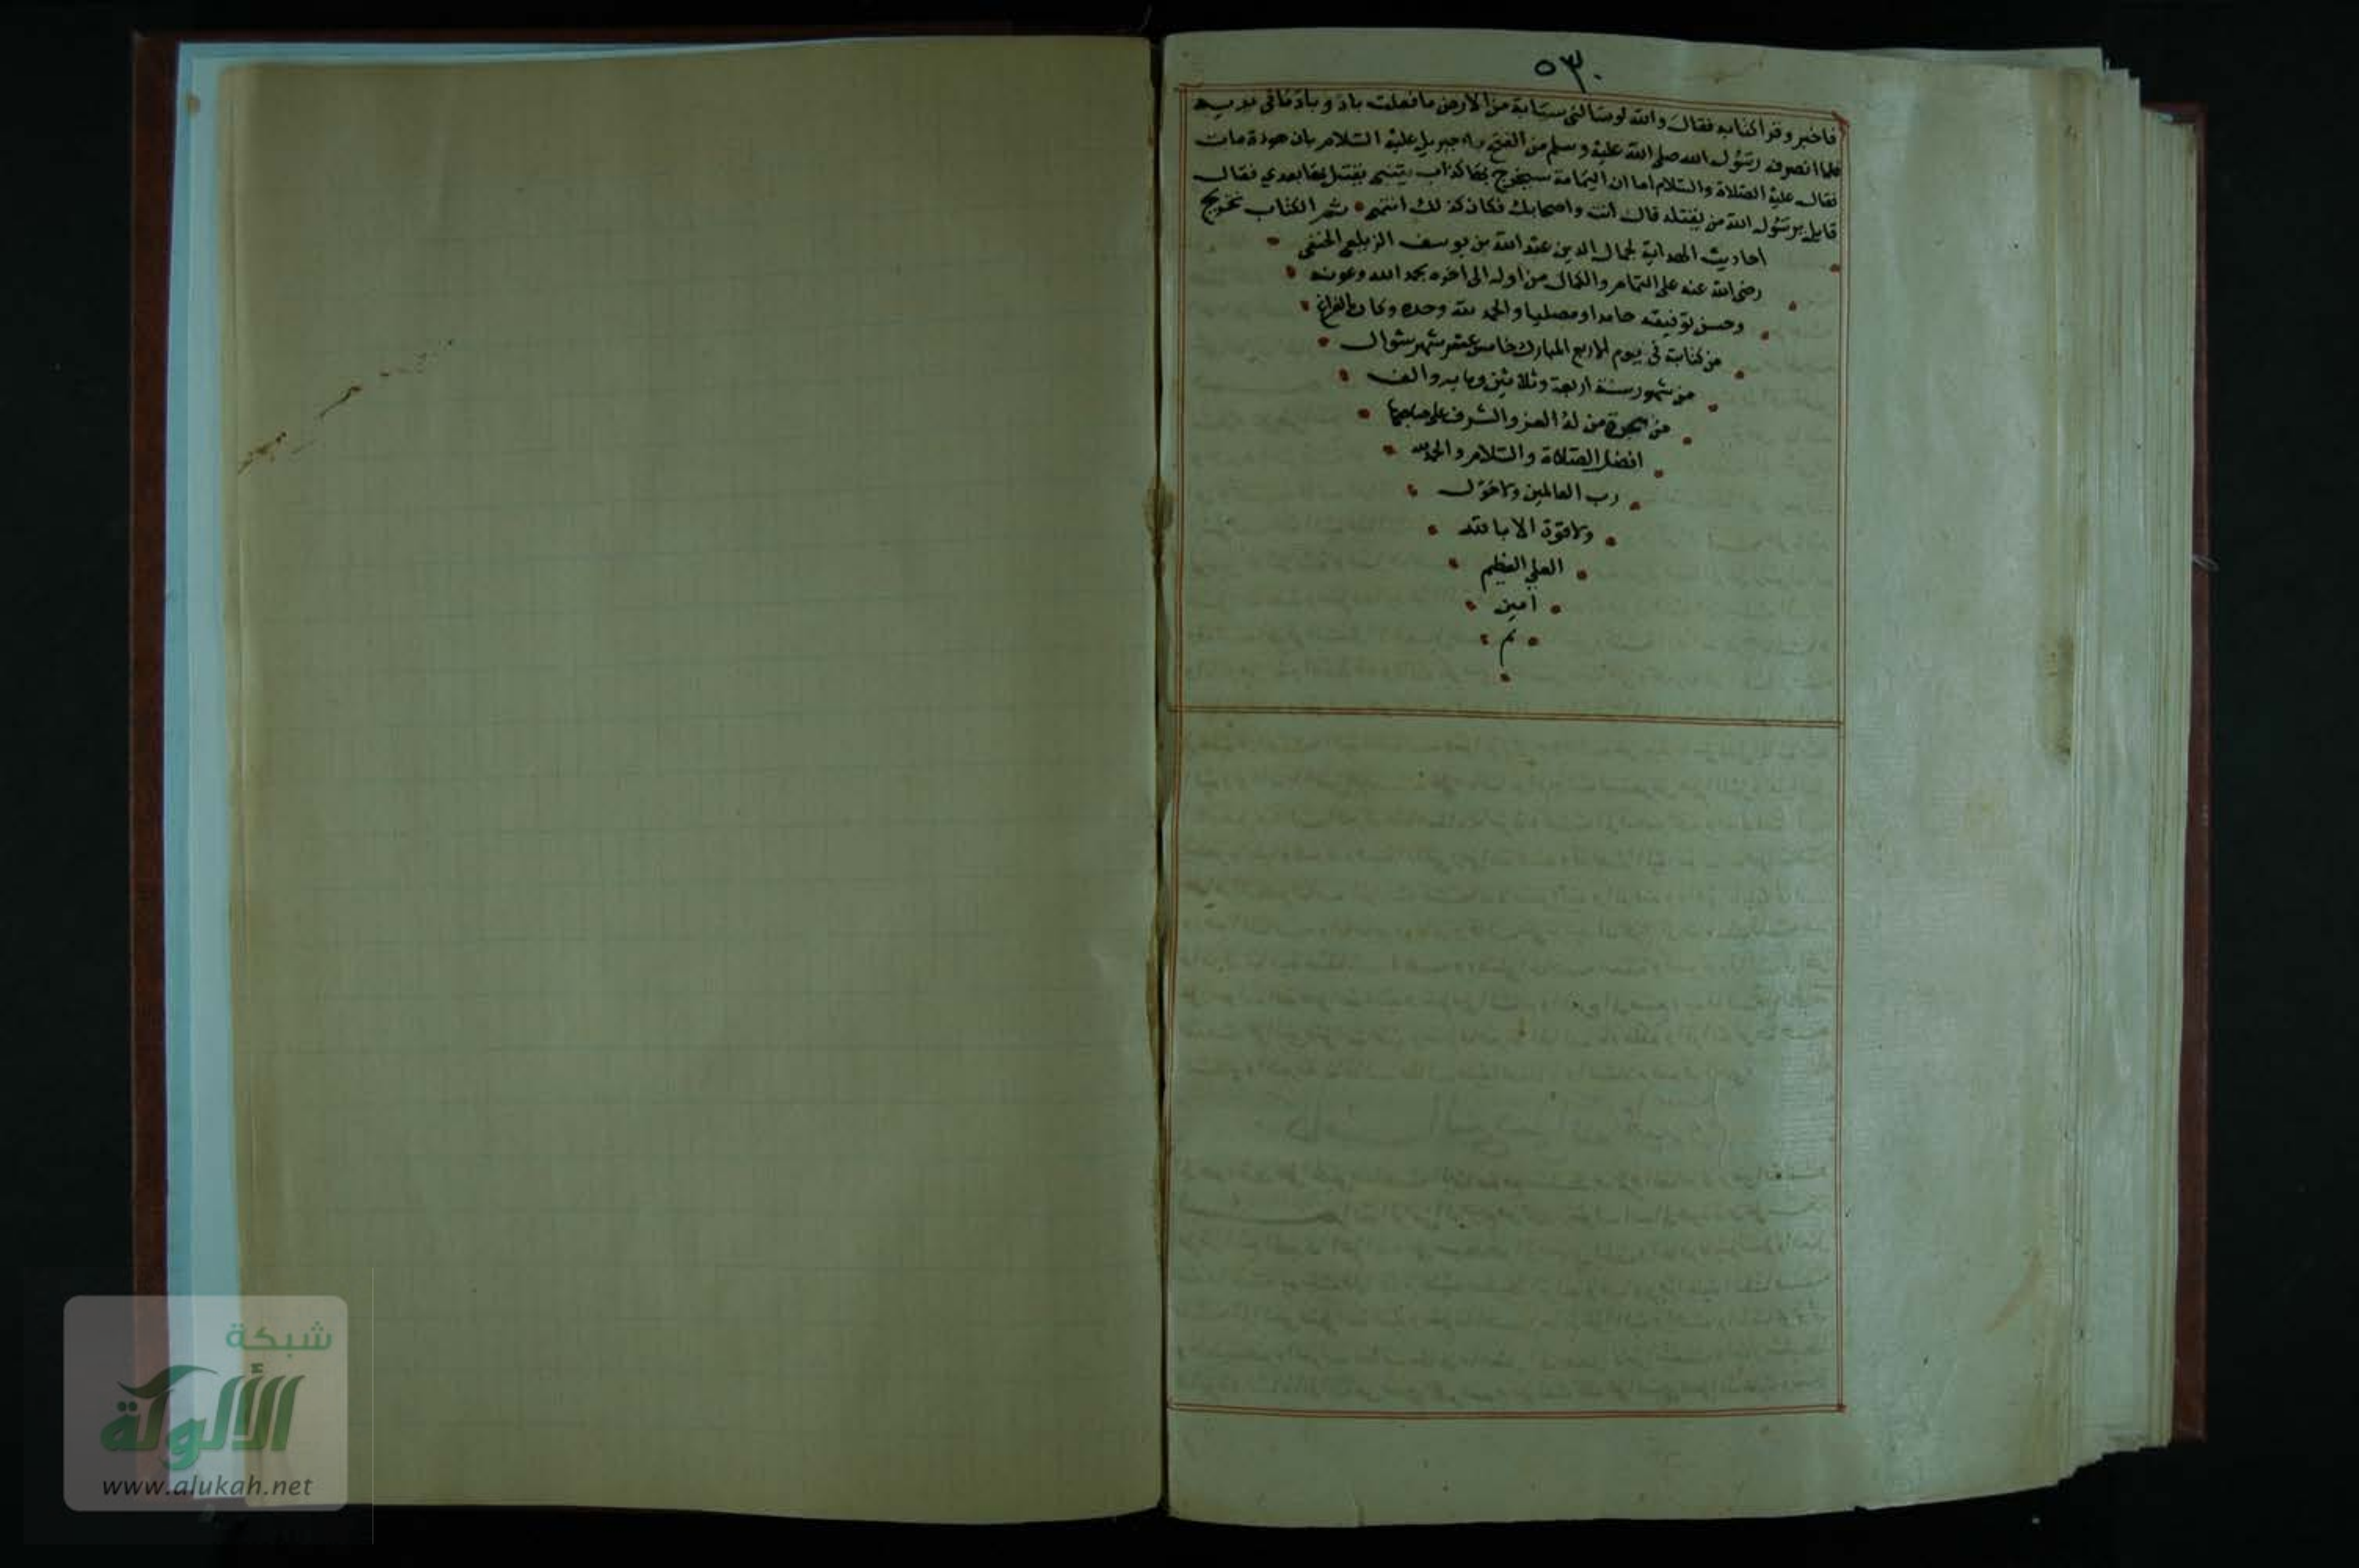 ٥٣٠
فاخبر وقرا كتابه فقال والله لو سالنى سيابة من الارض ما فعلت باد وباد ما فى يديه
فلما انصرف رسول الله صلى الله عليه وسلم من الفتح جاءه جبريل عليه السلام بان هوذة مات
فقال عليه الصلاة والسلام اما ان اليمامة سيخرج بها كذاب يتنبى يقتل بعدي فقال
قايل يرسول الله من يقتله قال انت واصحابك فكان كذلك انتهى • تم الكتاب تخريج
احاديث الهداية لجمال الدين عبد الله بن يوسف الزيلعى الحنفى
رضى الله عنه على التمام والكمال من اوله الى اخره بحمد الله وعونه
وحسن توفيقه حامدا ومصليا والحمد لله وحده وكان الفراغ
من كتابته فى يوم الاربع المبارك خامس عشر شهر شوال
من شهور سنة اربعة وثلاثين ومايه والف
من هجرة من له العز والشرف على صاحبها
افضل الصلاة والسلام والحمد لله
رب العالمين ولا حول
ولا قوة الا بالله
العلى العظيم
امين
تم
شبكة
الألوكة
www.alukah.net